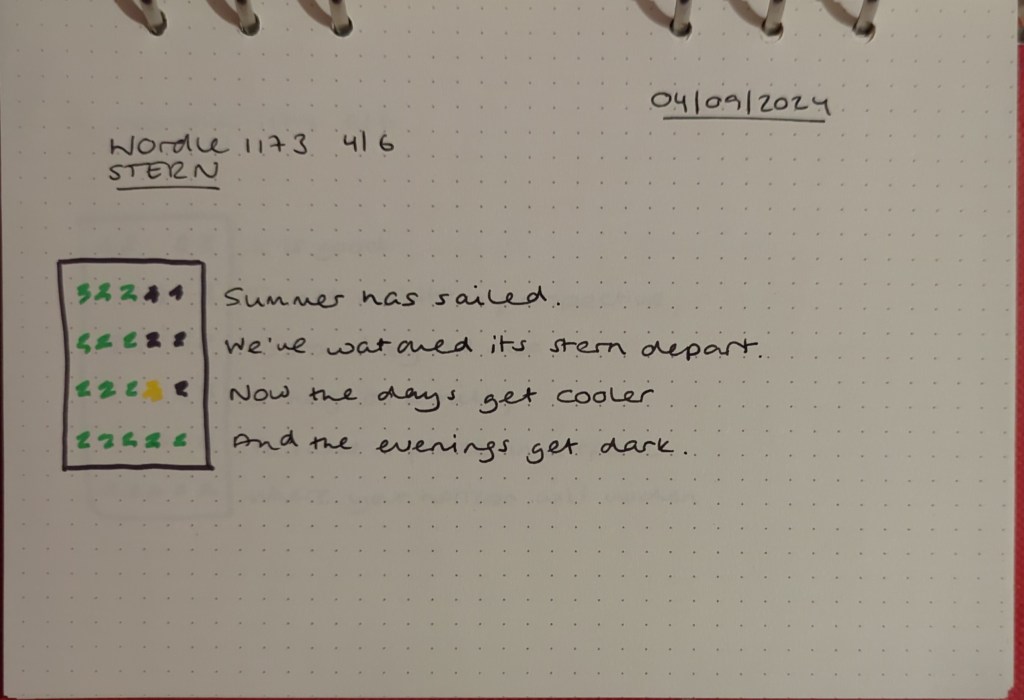 04/09/2024
Wordle 1173 4/6
STERN
Summer has sailed.
We've watched its stern depart.
Now the days get cooler
And the evenings get dark.